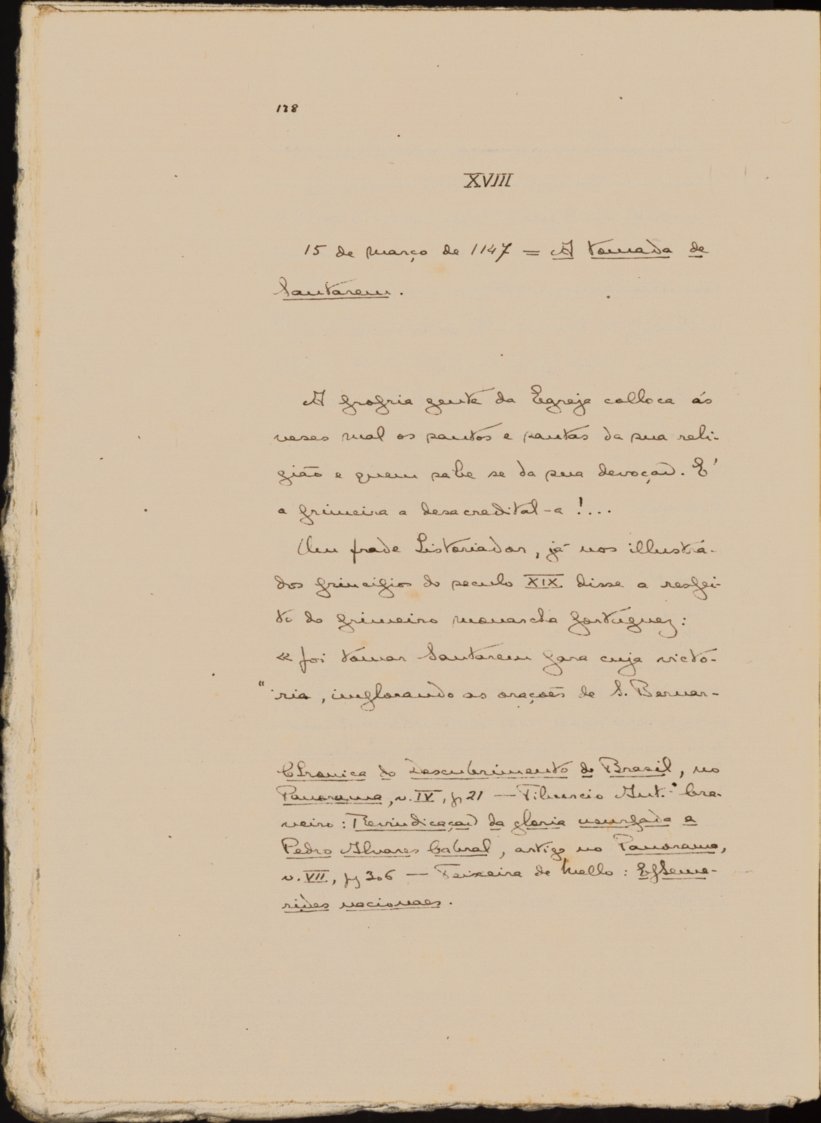 138
XVIII
15 de março de 1147 = A tomada de
Santarem.
A propria gente da Egreja colloca ás
veses mal os santos e santas da sua reli-
gião e quem sabe se da sua devoção. E'
a primeira a desacredital-a!...
Um frade historiador, já nos illustra-
dos principios do seculo XIX disse a respei-
to do primeiro monarcha portuguez:
« foi tomar Santarem para cuja victo-
" ria, implorando as orações de S. Bernar-
Chronica do Descubrimento do Brasil, no
Panorama, v. IV, p 21 — Tiburcio Ant.º Cra-
veiro: Revindicação da gloria usurpada a
Pedro Alvares Cabral, artigo no Panorama,
v. VII, pg 206 — Teixeira de Mello: Epheme-
rides nacionaes.